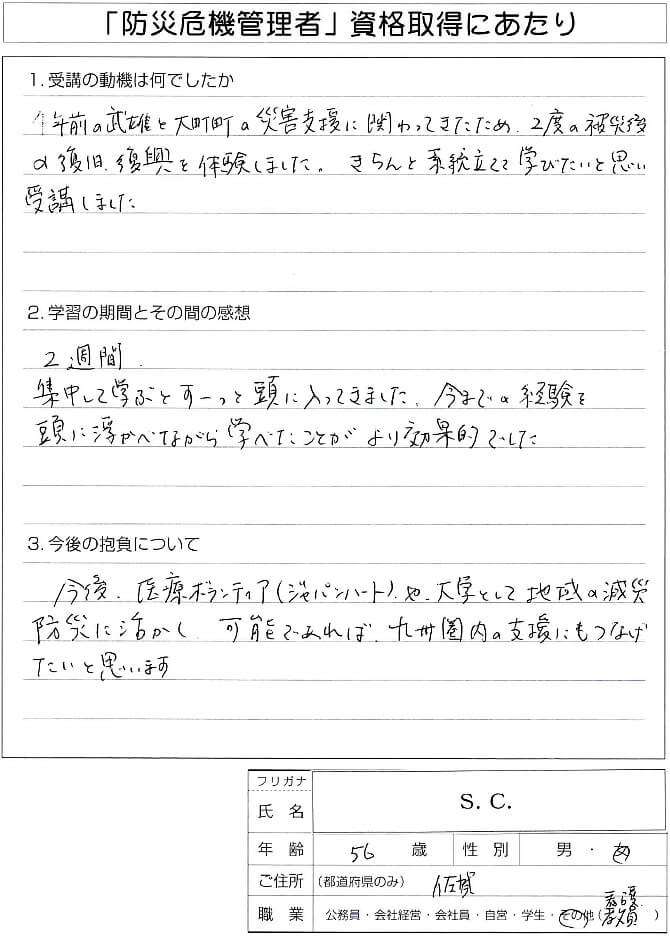 「防災危機管理者」資格取得にあたり
1. 受講の動機は何でしたか
4年前の武雄と大町町の災害支援に関わってきたため、2度の被災後
の復旧、復興を体験しました。きちんと系統立てて学びたいと思い
受講しました
2. 学習の期間とその間の感想
2週間.
集中して学ぶとすーっと頭に入ってきました、今までの経験を
頭に浮かべながら学べたことがより効果的でした
3. 今後の抱負について
今後、医療ボランティア(ジャパンハート)や、大学として地域の減災
防災に活かし、可能であれば、九州圏内の支援にもつなげ
たいと思います
フリガナ
氏 名 S. C.
年 齢 56 歳 性 別 男 ・ 女
ご住所 (都道府県のみ) 佐賀
職 業 公務員・会社経営・会社員・自営・学生・その他( 看護 教員 )